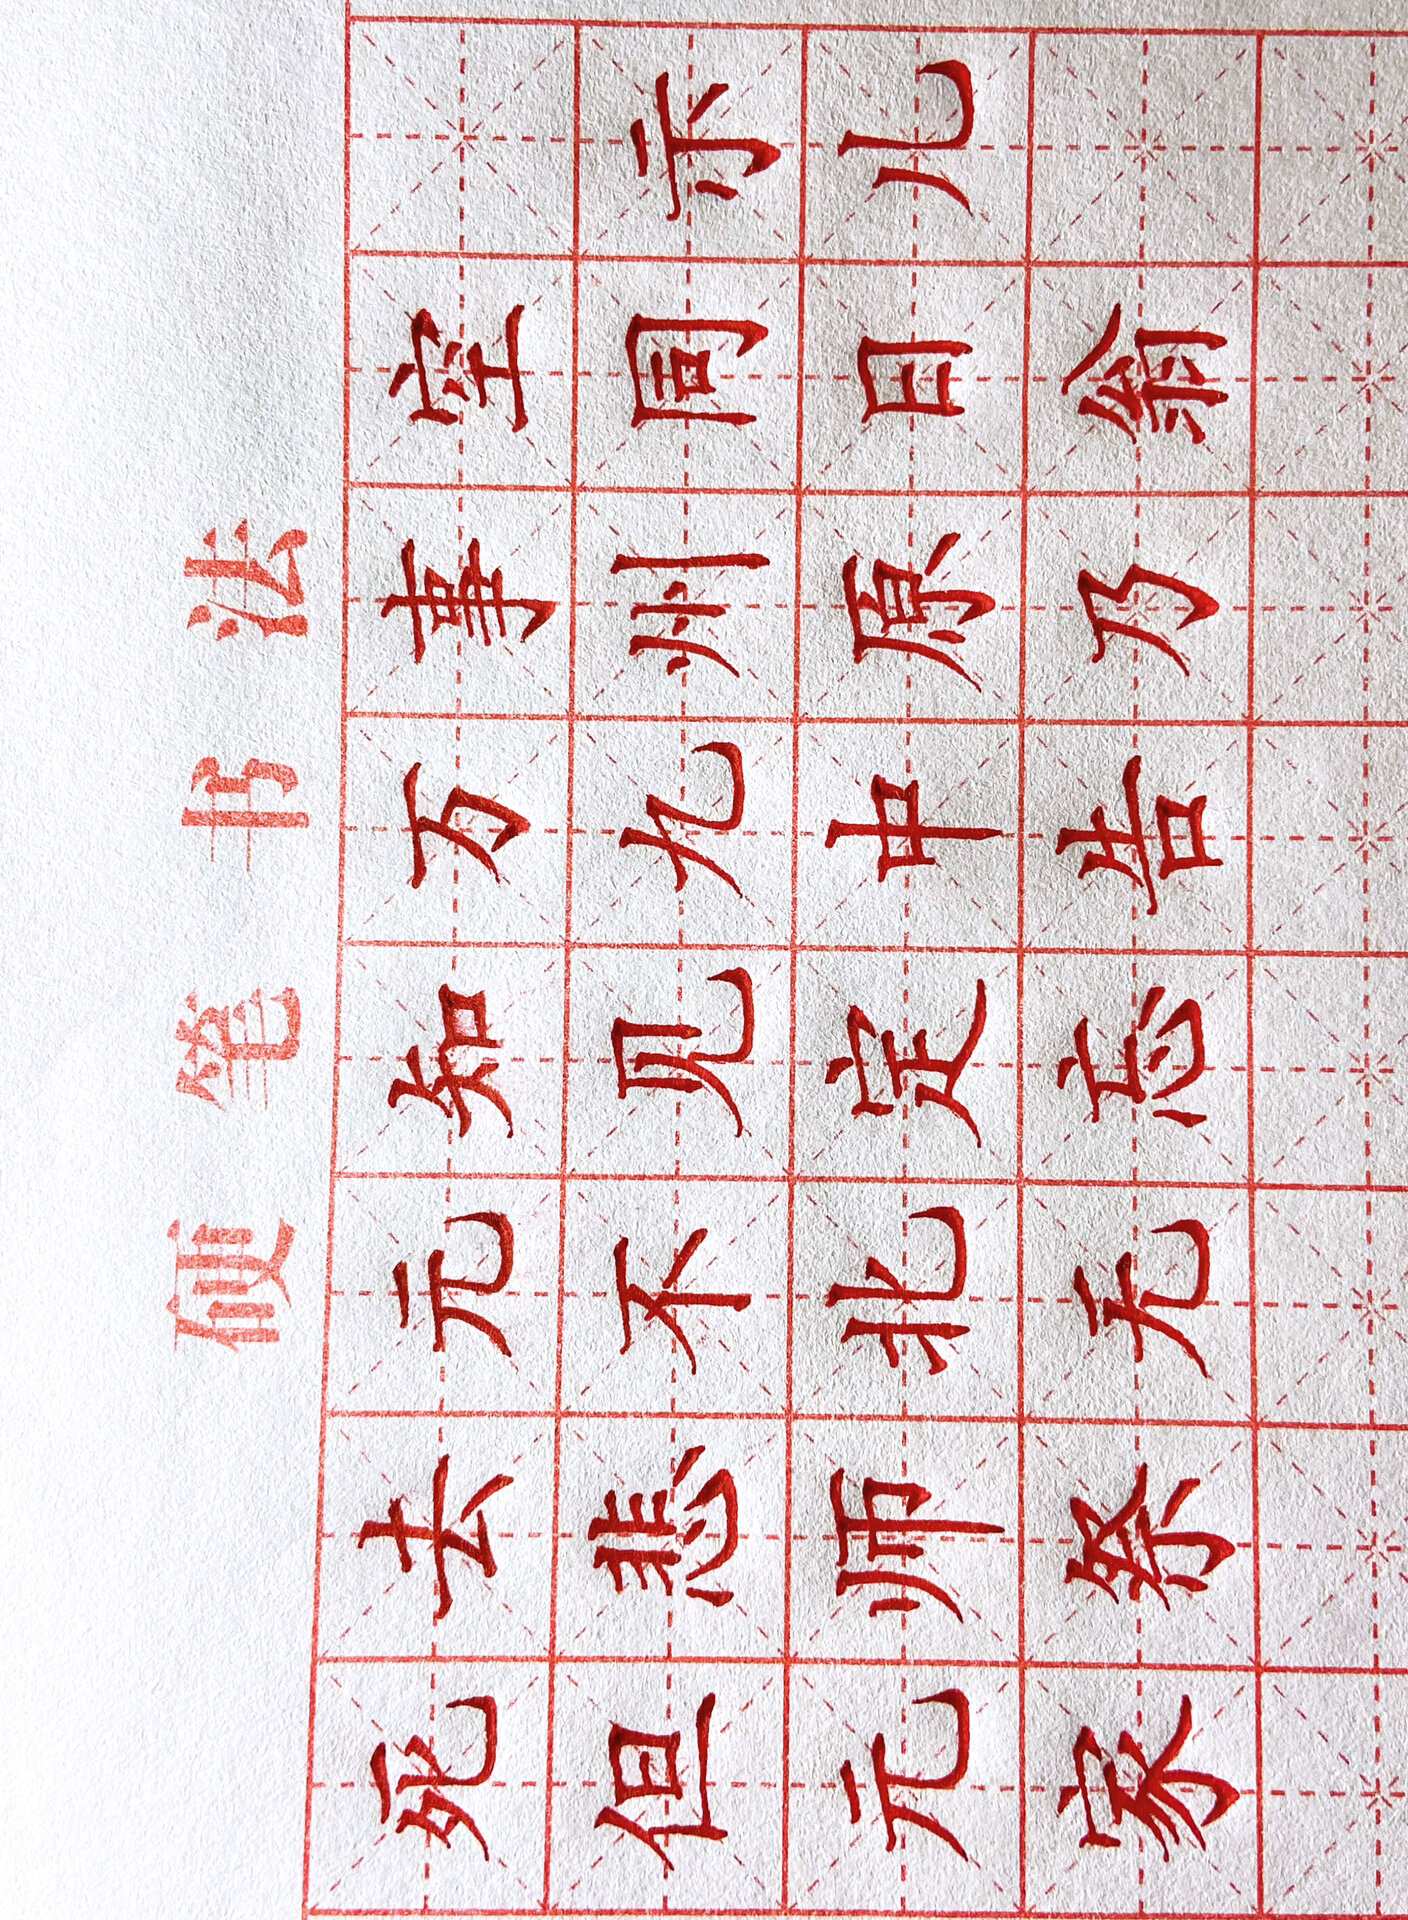 硬笔书法
死去元知万事空
但悲不见九州同示
元师北定中原日儿
家祭无忘告乃翁